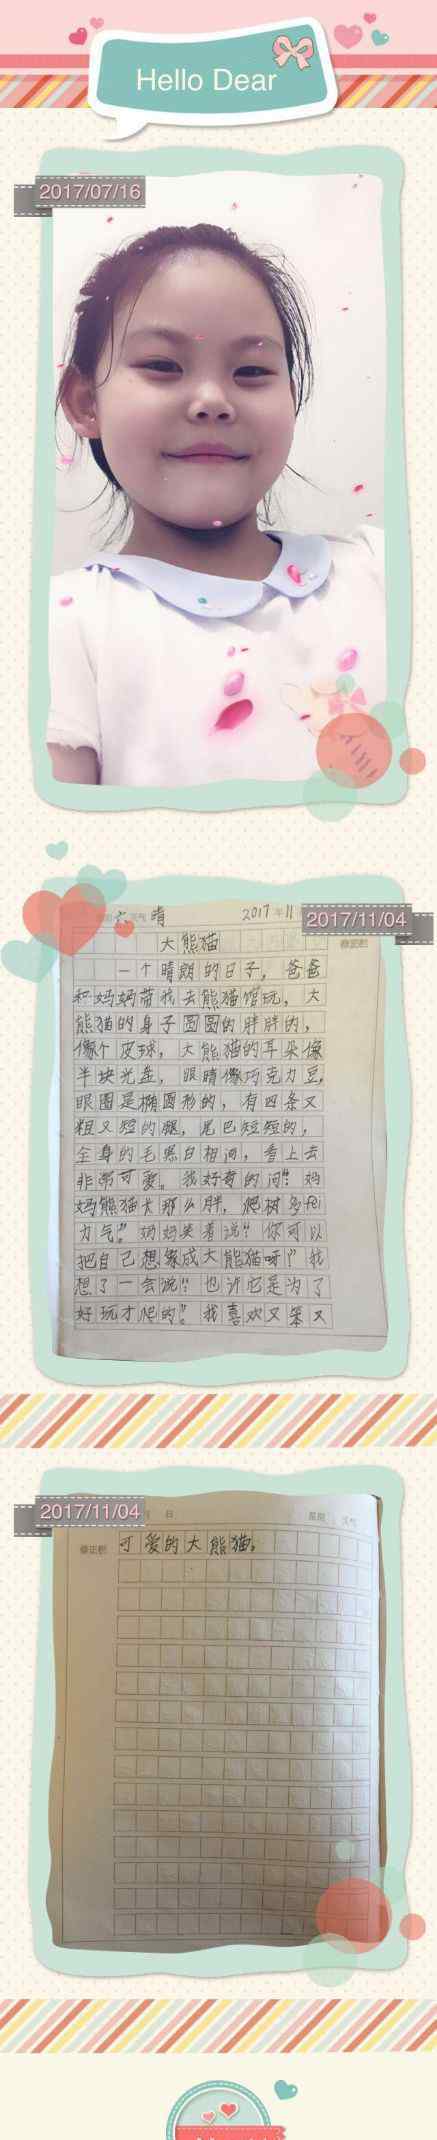 Hello Dear
2017/07/16
六 天气 晴 2017 年 11
2017/11/04
大熊猫
修正栏
一个晴朗的日子，爸爸
和妈妈带我去熊猫馆玩，大
熊猫的身子圆圆的胖胖的，
像个皮球，大熊猫的耳朵像
半块光盘，眼睛像巧克力豆，
眼圈是椭圆形的，有四条又
粗又短的腿，尾巴短短的，
全身的毛黑白相间，看上去
非常可爱。我好奇的问：“妈
妈熊猫大那么胖，爬树多fèi
力气”。妈妈笑着说：“你可以
把自己想象成大熊猫呀！”我
想了一会说：“也许它是为了
好玩才爬的”。我喜欢又笨又
2017/11/04
月 日 星期 天气
修正栏
可爱的大熊猫。